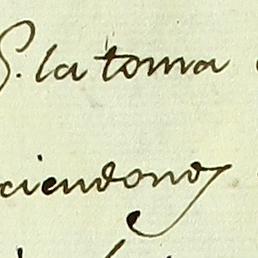 S. la toma
ciendono